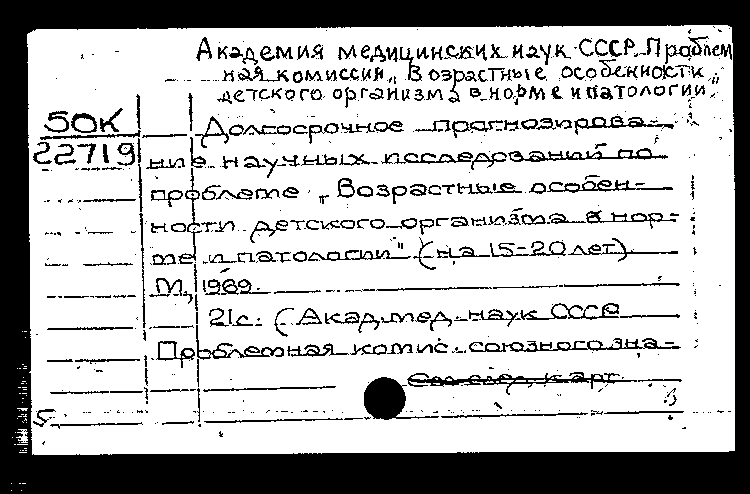 Академия медицинских наук СССР. Проблем
ная комиссия „Возрастные особенности
детского организма в норме и патологии.
50К
22719
Долгосрочное прогнозирова-
ние научных исследований по
проблеме „Возрастные особен-
ности детского организма в нор-
ме и патологии" (на 15-20 лет).
М., 1989.
21с. (Акад. мед. наук СССР
Проблемная комис. союзного зна-
См. след. карт